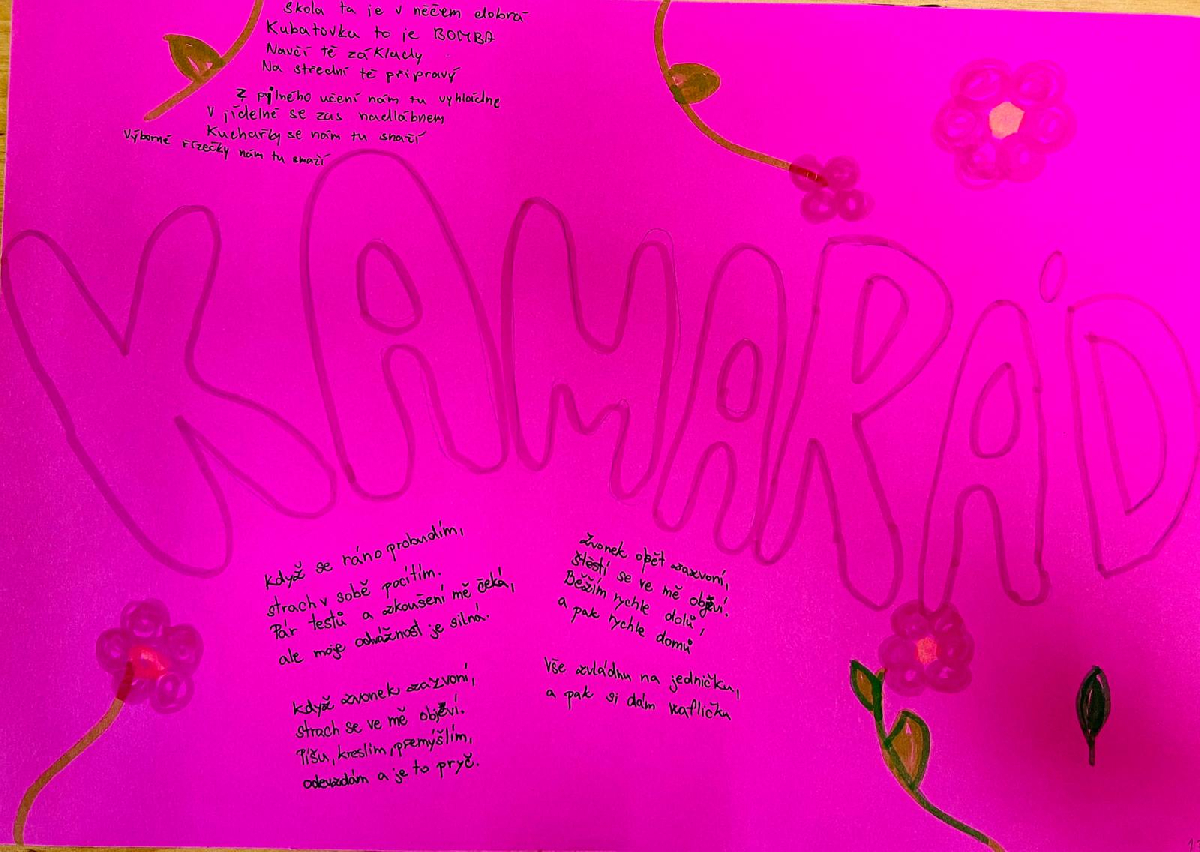 škola ta je v něčem dobrá
Kubatovka to je BOMBA
Naučí tě základy
Na střední tě připravý
Z pilného učení nám tu vyhládne
V jídelně se zas nadlábnem
Kuchařky se nám tu snaží
Výborné řízečky nám tu smaží
KAMARÁD
Když se ráno probudím,
strach v sobě pocítím.
Pár testů a zkoušení mě čeká,
ale moje odvážnost je silná.
Když zvonek zazvoní,
strach se ve mě objeví.
Píšu, kreslím, přemýšlím,
odevzdám a je to pryč.
Zvonek opět zazvoní,
štěstí se ve mě objeví.
Běžím rychle dolů,
a pak rychle domů
Vše zvládnu na jedničku,
a pak si dám kafíčku